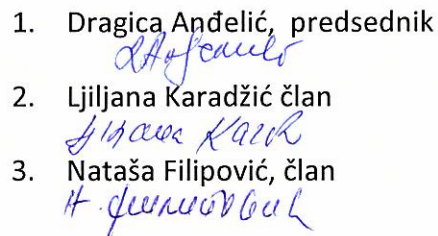 1. Dragica Anđelić, predsednik
2. Ljiljana Karadžić član
3. Nataša Filipović, član
Н. Филиповић